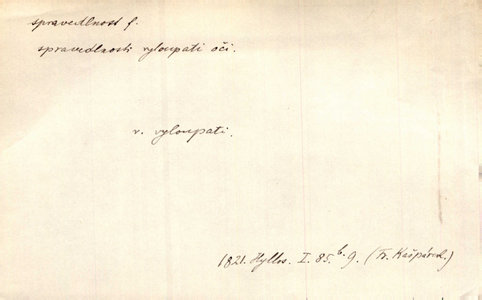 spravedlnost f.
spravedlnosti vyloupati oči.
v. vyloupati.
1821. Hyllos. I. 85.b. 9. (Fr. Kašpárek.)